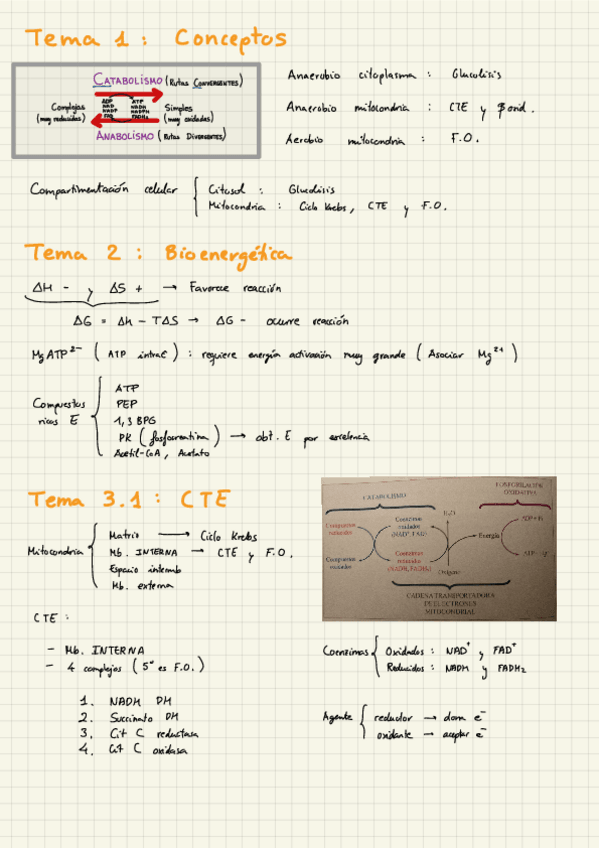 Tema 1 : Conceptos
CATABOLISMO (RUTAS CONVERGENTES)
Complejas (muy reducidas)
ADP NAD NADP FAD
ATP NADH NADPH FADH2
Simples (muy oxidadas)
ANABOLISMO (RUTAS DIVERGENTES)
Anaerobio citoplasma : Glucolisis
Anaerobio mitocondria : CTE y β oxid.
Aerobio mitocondria : F.O.
Compartimentación celular
Citosol : Glucolisis
Mitocondria : Ciclo Krebs, CTE y F.O.
Tema 2 : Bioenergética
ΔH - y ΔS + → Favorece reacción
ΔG = ΔH - TΔS → ΔG - ocurre reacción
MgATP²⁻ ( ATP intraC ) : requiere energía activación muy grande ( Asociar Mg²⁺ )
Compuestos ricos E
ATP
PEP
1,3 BPG
PK ( fosfocreatina ) → obt. E por excelencia
Acetil-CoA, Acetato
Tema 3.1 : CTE
Mitocondria
Matriz → Ciclo Krebs
Mb. INTERNA → CTE y F.O.
Espacio intermb
Mb. externa
CATABOLISMO
FOSFORILACIÓN OXIDATIVA
Compuestos reducidos
Compuestos oxidados
Coenzimas oxidados (NAD⁺, FAD)
Coenzimas reducidos (NADH, FADH₂)
H₂O
Oxígeno
Energía
ADP + Pi
ATP
CADENA TRANSPORTADORA DE ELECTRONES MITOCONDRIAL
CTE :
- Mb. INTERNA
- 4 complejos ( 5º es F.O. )
1. NADH DH
2. Succinato DH
3. Cit C reductasa
4. Cit C oxidasa
Coenzimas
Oxidados : NAD⁺ y FAD⁺
Reducidos : NADH y FADH₂
Agente
reductor → dona e⁻
oxidante → aceptar e⁻